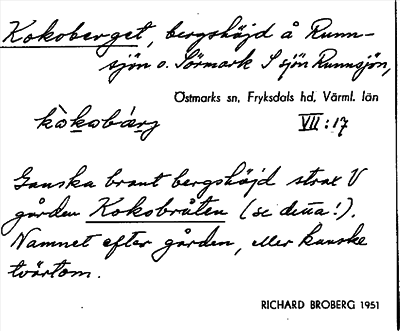 Kokoberget, bergshöjd å Runn-
sjön o. Sörmark S sjön Runnsjön,
Östmarks sn, Fryksdals hd, Värml. län
kòkobárg VII:17
Ganska brant bergshöjd strax V
gården Kokobråten (se detta!).
Namnet efter gården, eller kanske
tvärtom.
RICHARD BROBERG 1951